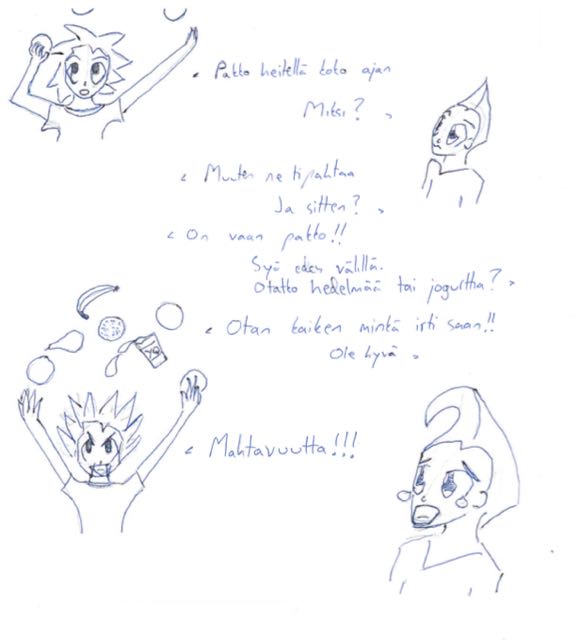 Pakko heitellä koko ajan
Miksi?
Muuten ne tipahtaa
Ja sitten?
On vaan pakko!!
Syö edes välillä.
Otatko hedelmää tai jogurttia?
Otan kaiken minkä irti saan!!
Ole hyvä
Mahtavuutta!!!